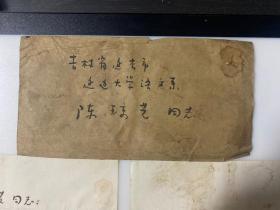 吉林省延吉市
延边大学汉文系
陈琼芝 同志
同志：